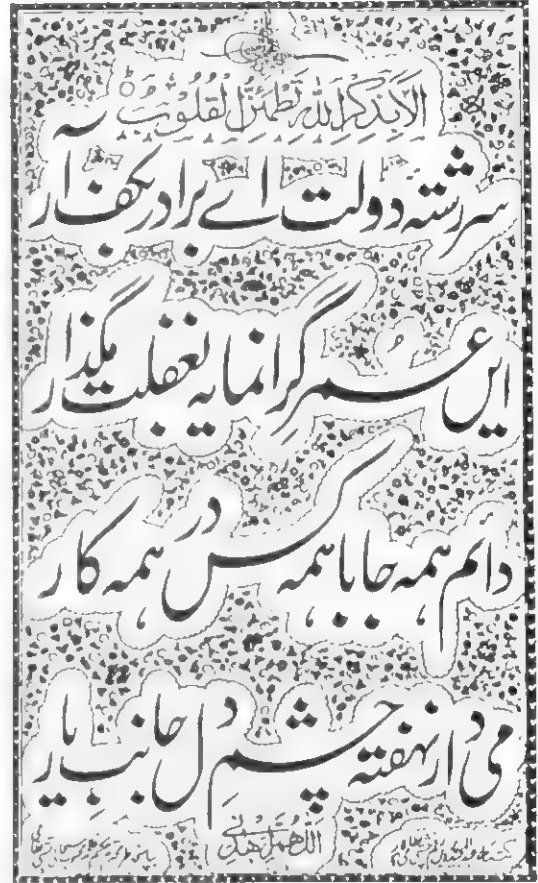 اَلَا بِذِكْرِ اللهِ تَطْمَئِنُّ الْقُلُوْبُ
سر رشته دولت اے برادر بکف آر
ایں عُمر گرانمایہ بغفلت مگذار
دائم ہمہ جا با ہمہ کس در ہمہ کار
می دار نہفتہ چشم دل جانب یار